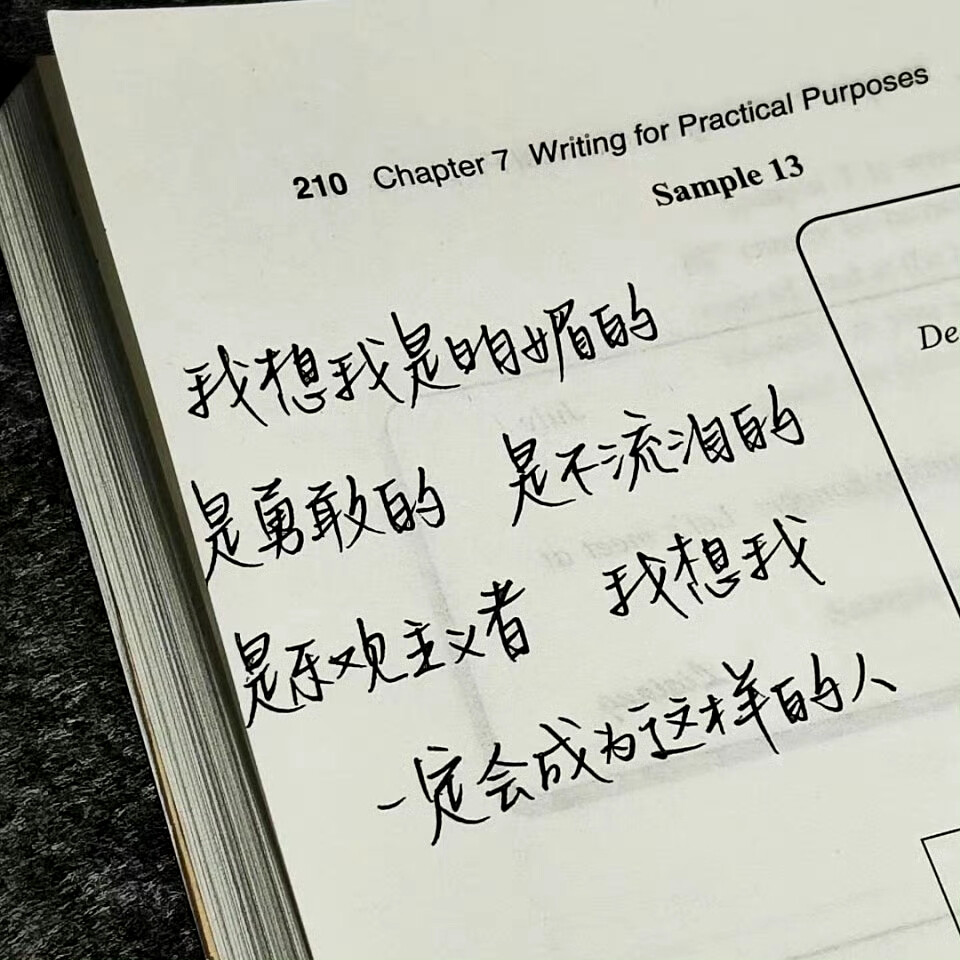 210 Chapter 7 Writing for Practical Purposes
Sample 13
De
我想我是明媚的
是勇敢的 是不流泪的
是乐观主义者 我想我
一定会成为这样的人